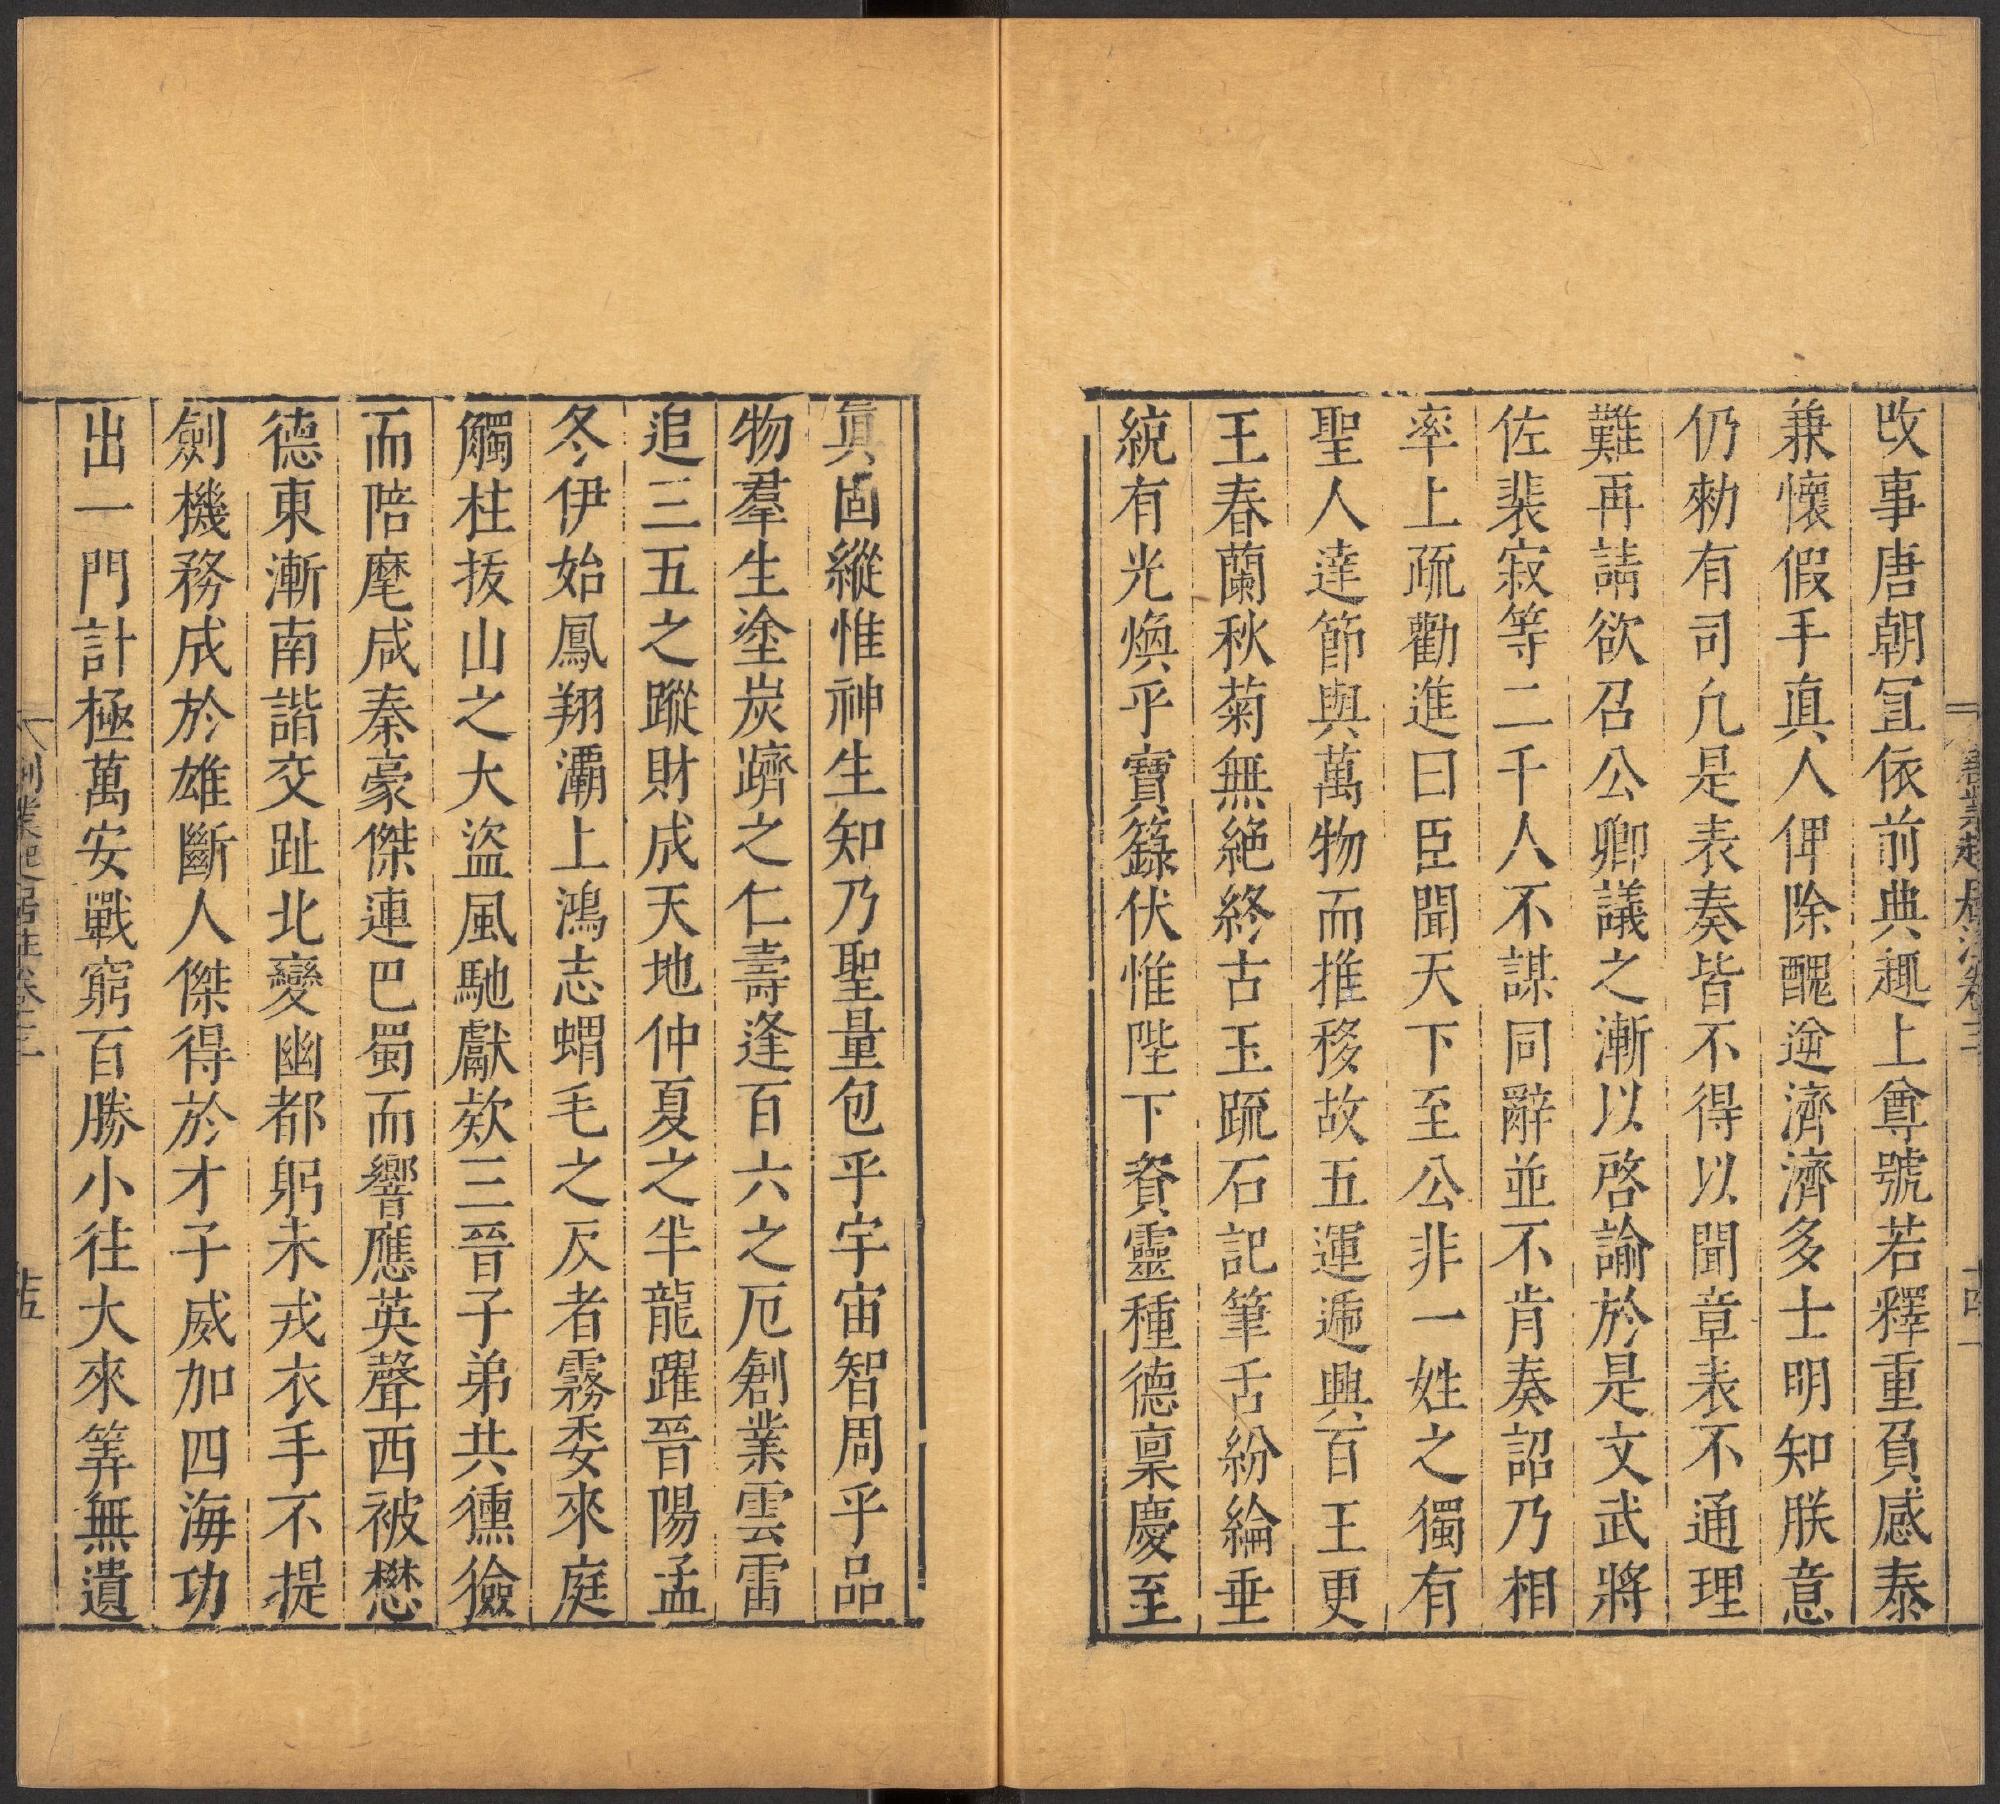 改事唐朝宜依前典趣上尊號若釋重負感泰
兼懷假手真人俾除醜逆濟濟多士明知朕意
仍勑有司凢是表奏皆不得以聞章表不通理
難再請欲召公卿議之漸以啓諭於是文武將
佐裴寂等二千人不謀同辭並不肯奏詔乃相
率上疏勸進曰臣聞天下至公非一姓之獨有
聖人達節與萬物而推移故五運遞興百王更
王春蘭秋菊無絶終古玉䟽石記筆舌紛綸垂
統有光煥乎寶籙伏惟陛下資靈種德稟慶至
真固縱惟神生知乃聖量包乎宇宙智周乎品
物羣生塗炭躋之仁壽逢百六之厄創業雲雷
追三五之蹤財成天地仲夏之半龍躍晉陽孟
冬伊始鳳翔灞上鴻志蝟毛之反者霧委來庭
觸柱拔山之大盜風馳獻欵三晉子弟共獯獫
而陪麾咸秦豪傑連巴蜀而響應英聲西被懋
德東漸南諧交趾北變幽都躬未戎衣手不提
劍機務成於雄斷人傑得於才子威加四海功
出一門計極萬安戰窮百勝小往大來筭無遺
創業起居注卷三
十五